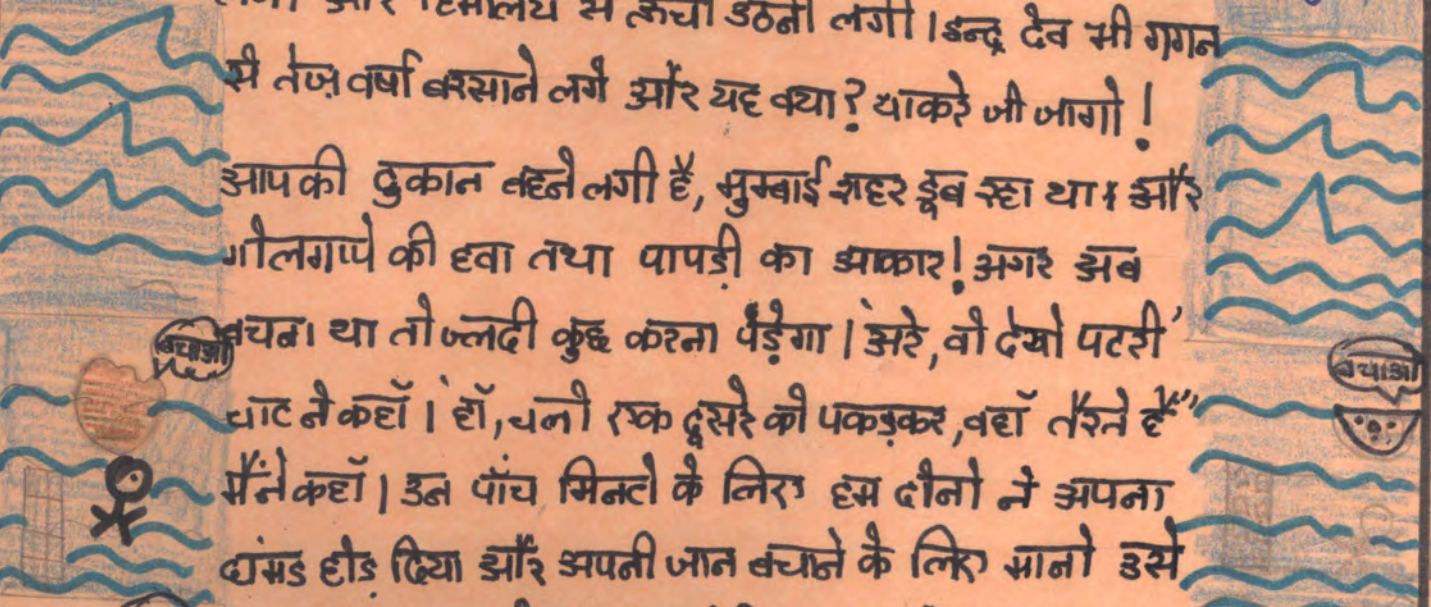 और हिमालय से ऊँचा उठना लगी। इन्द्र देव भी गगन
से तेज़ वर्षा बरसाने लगे और यह क्या? थाकरे जी जागो!
आप की दुकान बहने लगी है, मुम्बाई शहर डूब रहा था। और
गोलगप्पे की हवा तथा पापड़ी का आकार! अगर अब
बचना था तो ज्लदी कुछ करना पड़ेगा। अरे, वो देखो पटरी'
बचाओ
बचाओ
चाट ने कहाँ। हाँ, चलो एक दूसरे को पकड़कर, वहाँ तैरते है"
मैंने कहाँ। उन पाँच मिनटो के लिए हम दोनो ने अपना
घंमड छोड दिया और अपनी जान बचाने के लिए मानो उसे